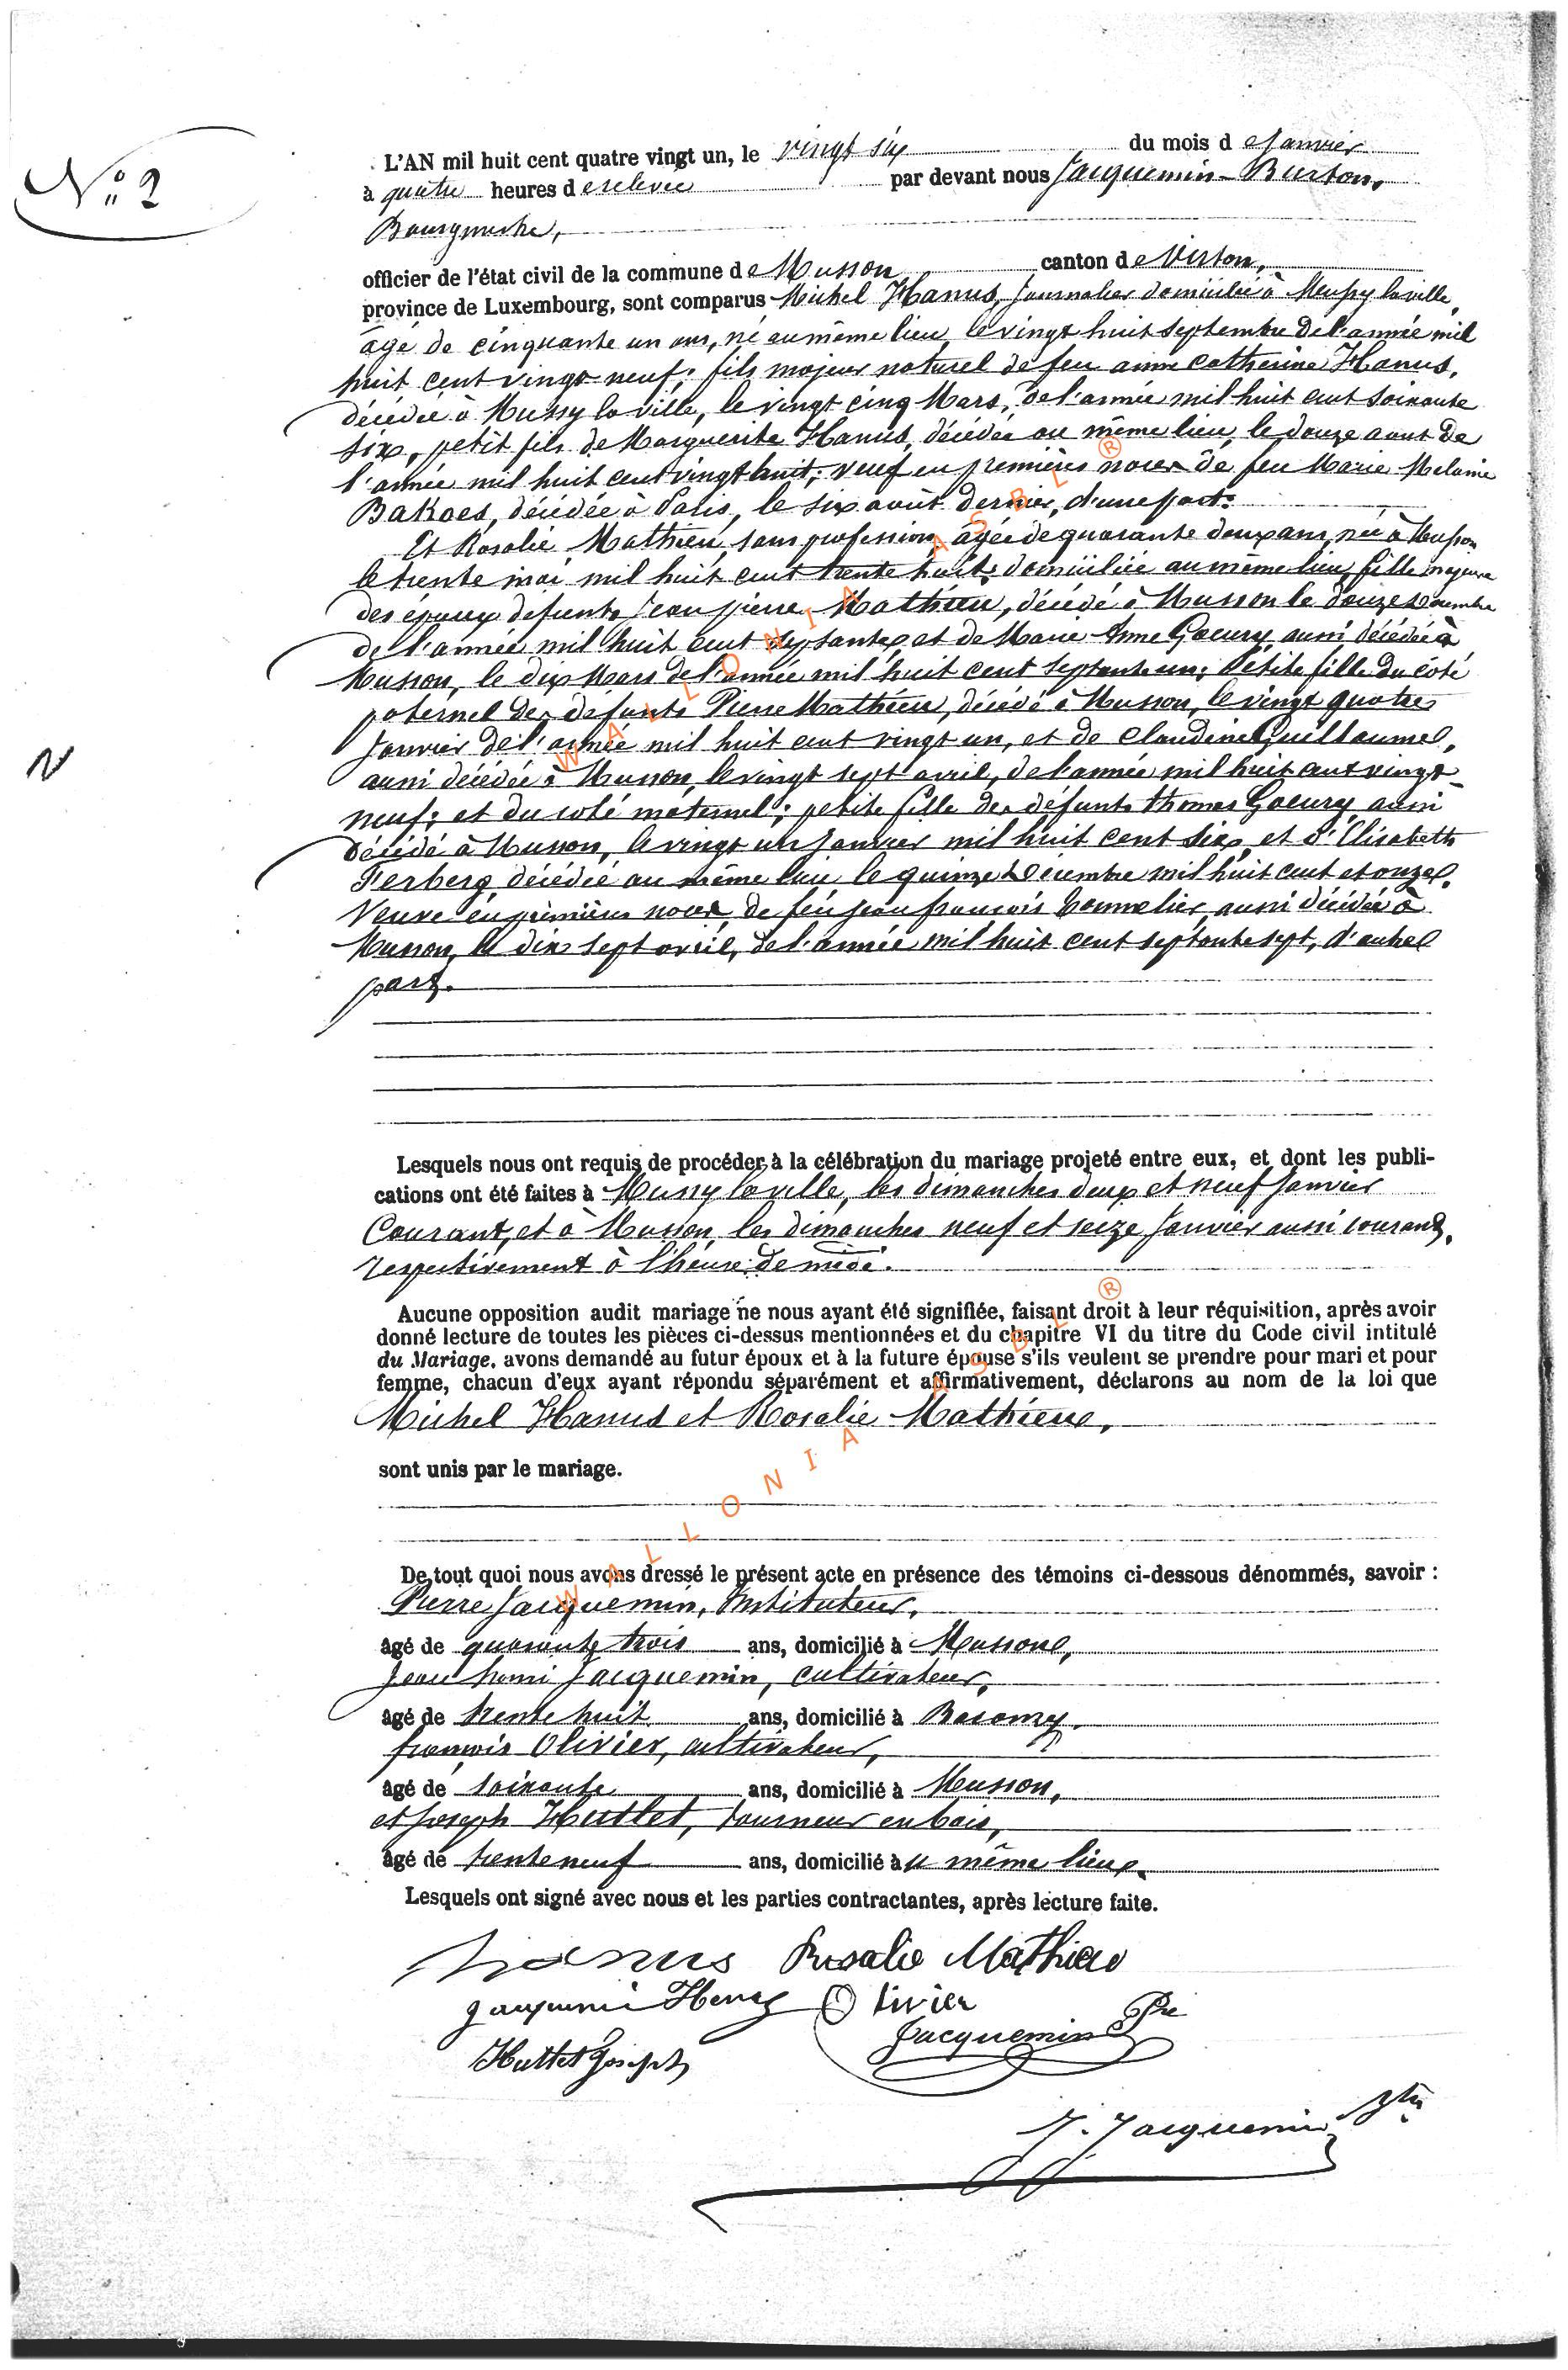 N° 2
L'AN mil huit cent quatre vingt un, le vingt six du mois d e Janvier
à quatre heures d e relevée par devant nous Jacquemin-Burton,
Bourgmestre,
officier de l'état civil de la commune d e Musson canton d e Virton,
province de Luxembourg, sont comparus Michel Hanus, Journalier domicilié à Mussy laville,
âgé de cinquante un ans, né au même lieu, le vingt huit septembre de l'année mil
huit cent vingt neuf; fils majeur naturel de feu anne catherine Hanus,
décédée à Mussy la ville, le vingt cinq Mars, de l'année mil huit cent soixante
six, petit fils de Marguerite Hanus, décédée au même lieu, le douze aout de
l'année mil huit cent vingt huit; veuf en premières noces de feu Marie Melanie
Bakoes, décédée à Paris, le six août dernier, d'une part.
Et Rosalie Mathieu, sans profession, âgée de quarante deux ans, née à Musson
le trente mai mil huit cent trente huit; domiciliée au même lieu, fille majeure
des époux défunts Jean pierre Mathieu, décédé à Musson le douze Décembre
de l'année mil huit cent septante, et de Marie Anne Goeury, aussi décédée à
Musson, le dix Mars de l'année mil huit cent septante un; Petite fille du côté
paternel des défunts Pierre Mathieu, décédé à Musson, le vingt quatre
Janvier de l'année mil huit cent vingt un, et de Claudine Guillaume,
aussi décédée à Musson, le vingt sept avril, de l'année mil huit cent vingt
neuf; et du coté maternel; petite fille des défunts thomas Goeury, aussi
décédé à Musson, le vingt un Janvier mil huit cent six, et d'Elisabeth
Ferberg, décédée au même lieu le quinze Décembre mil huit cent et onze.
Veuve en premières noces de feu Jean françois aussi décédée à
Musson, le dix sept avril, de l'année mil huit cent septante sept, d'autre
part.
Lesquels nous ont requis de procéder à la célébration du mariage projeté entre eux, et dont les publi-
cations ont été faites à Mussy laville, les dimanches deux et neuf Janvier
Courant, et à Musson, les dimanches neuf et seize Janvier aussi courant,
respectivement à l'heure de midi.
Aucune opposition audit mariage ne nous ayant été signifiée, faisant droit à leur réquisition, après avoir
donné lecture de toutes les pièces ci-dessus mentionnées et du chapitre VI du titre du Code civil intitulé
du Mariage, avons demandé au futur époux et à la future épouse s'ils veulent se prendre pour mari et pour
femme, chacun d'eux ayant répondu séparément et affirmativement, déclarons au nom de la loi que
Michel Hanus et Rosalie Mathieu,
sont unis par le mariage.
De tout quoi nous avons dressé le présent acte en présence des témoins ci-dessous dénommés, savoir :
Pierre Jacquemin, Instituteur,
âgé de quarante trois ans, domicilié à Musson,
Jean henri Jacquemin, cultivateur,
âgé de trente huit ans, domicilié à Baranzy,
françois Olivier, cultivateur,
âgé de soixante ans, domicilié à Musson,
et Joseph Huttet, tourneur en bois,
âgé de trente neuf ans, domicilié à u même lieu.
Lesquels ont signé avec nous et les parties contractantes, après lecture faite.
hanus Rosalie Mathieu
Jacquemin Henry Olivier
Huttet Joseph Jacquemin Pre
J. Jacquemin
WALLONIA ASBL ®
WALLONIA ASBL ®